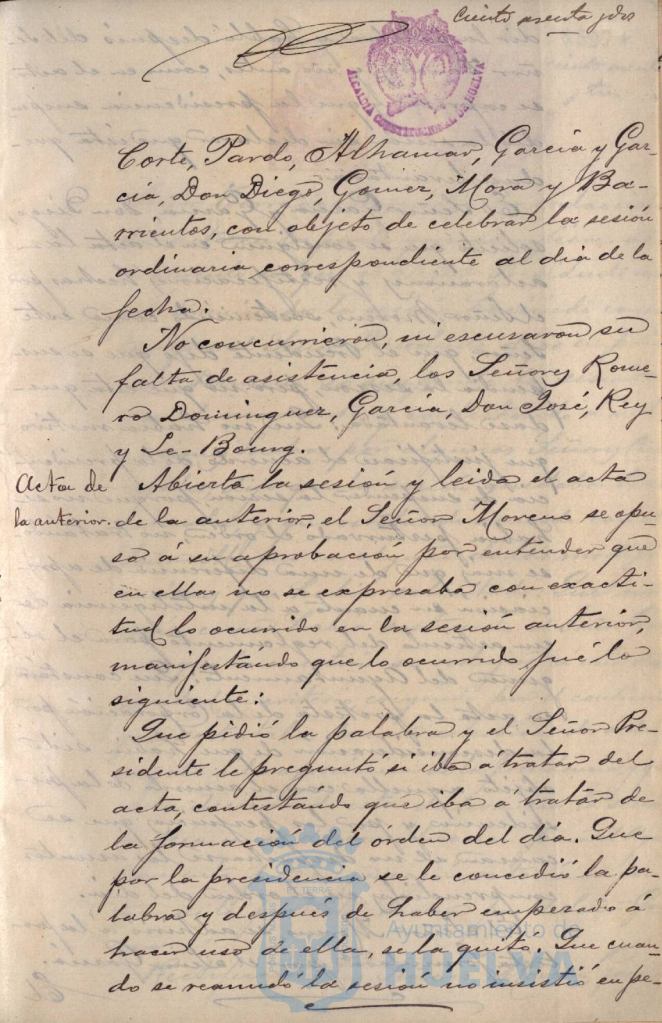 Ciento sesenta y dos
ALCALDIA CONSTITUCIONAL DE HUELVA
Corte, Pardo, Alhamar, Garcia y Gar-
cia, Don Diego, Gomez, Mora y Ba-
rrientos, con objeto de celebrar la sesión
ordinaria correspondiente al dia de la
fecha.
No concurrieron, ni escusaron su
falta de asistencia, los Señores Rome-
ro Dominguez, Garcia, Don José, Rey
y Le-Bourg.
Acta de
la anterior.
Abierta la sesión y leida el acta
de la anterior, el Señor Moreno se opu-
so á su aprobación por entender que
en ella no se expresaba con exacti-
tud lo ocurrido en la sesión anterior,
manifestando que lo ocurrido fué lo
siguiente:
Que pidió la palabra y el Señor Pre-
sidente le preguntó si iba á tratar del
acta, contestando que iba á tratar de
la formación del órden del dia. Que
por la presidencia se le concedió la pa-
labra y después de haber empezado á
hacer uso de ella, se la quitó. Que cuan-
do se reanudó la sesión no insistió en pe-
Ayuntamiento de
HUELVA